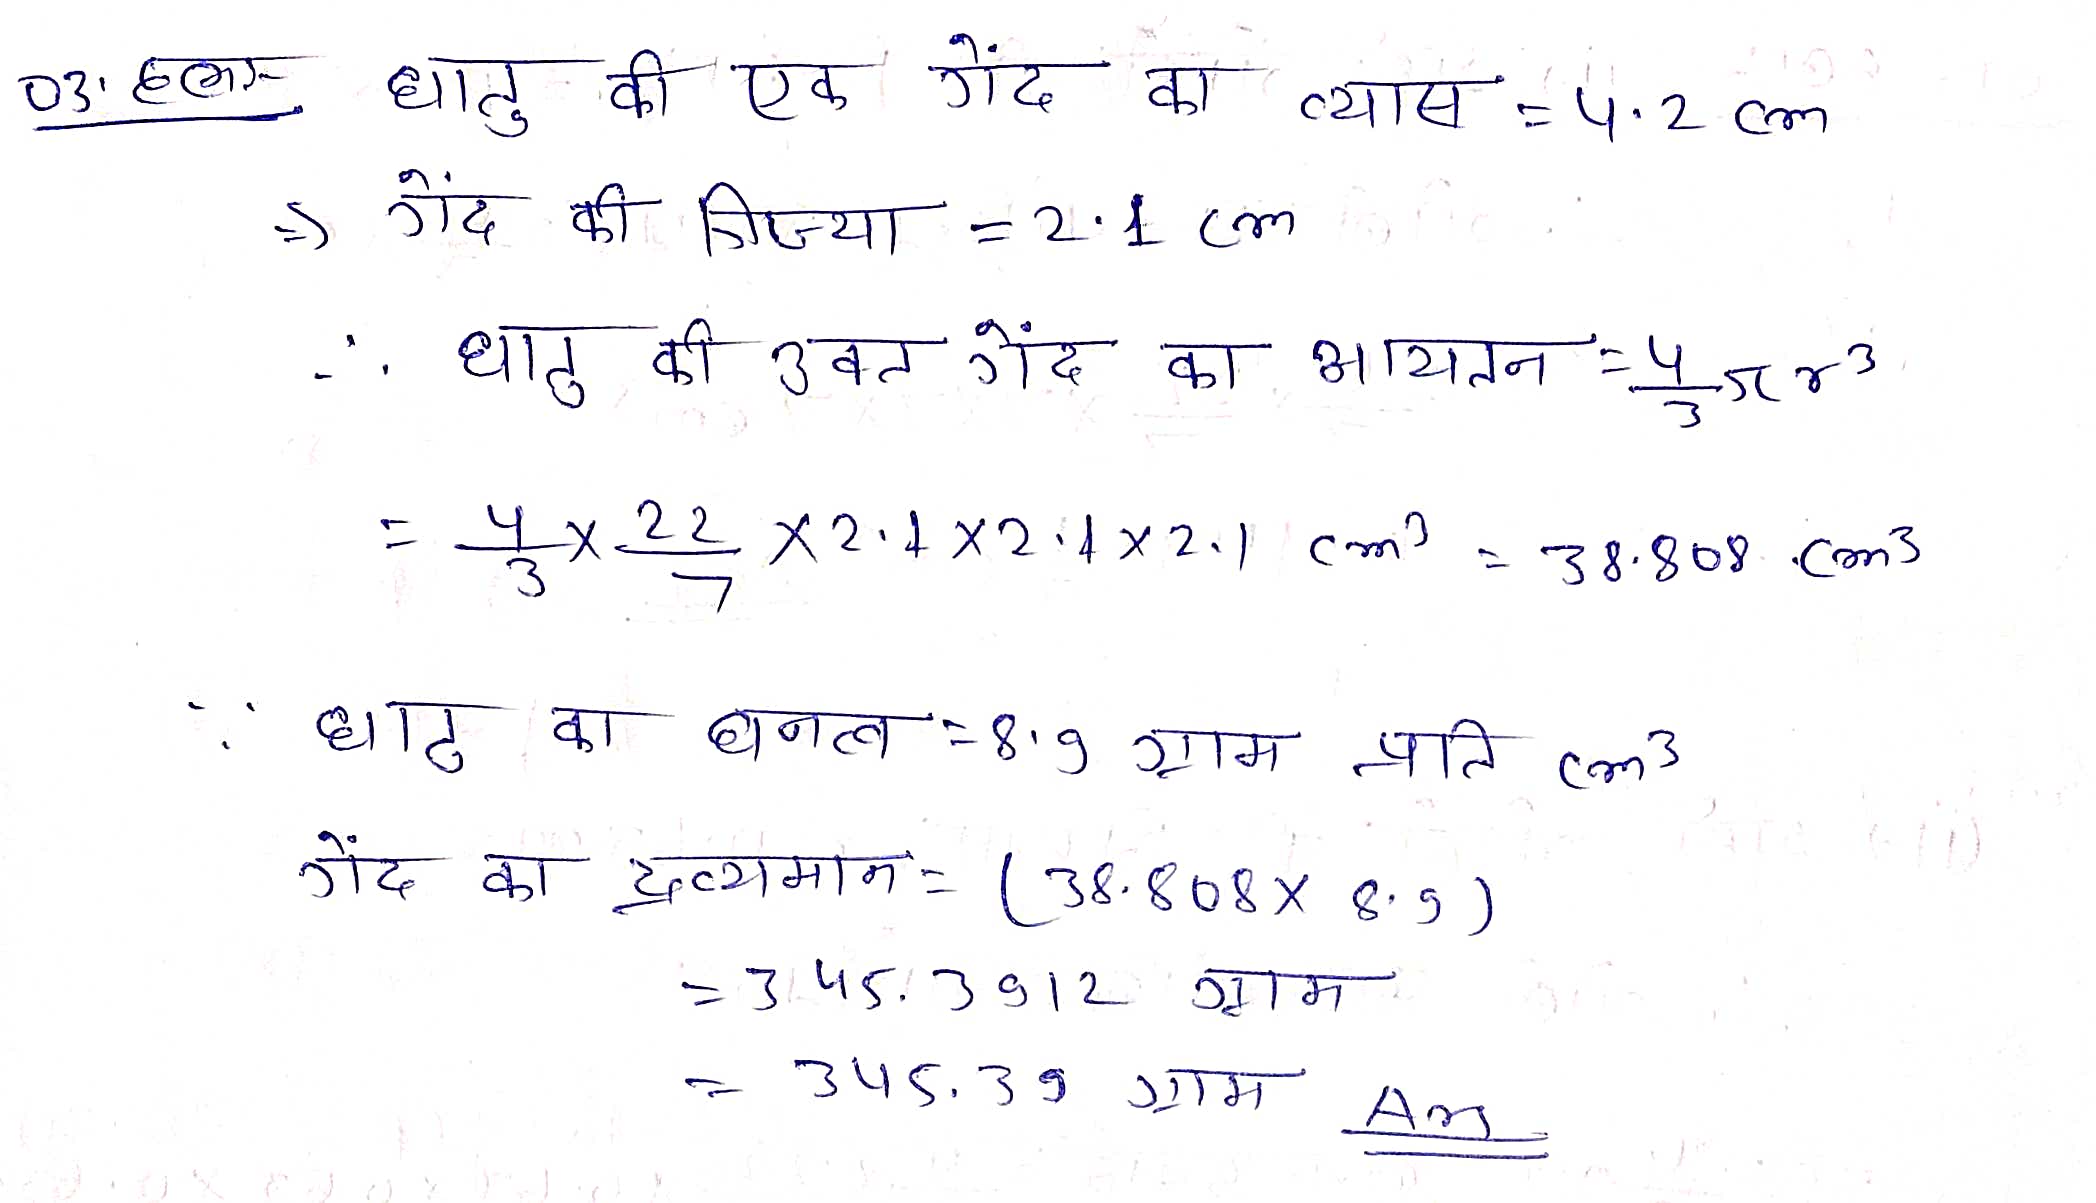 03. हल:- धातु की एक गेंद का व्यास = 4.2 cm
⇒ गेंद की त्रिज्या = 2.1 cm
∴ धातु की उक्त गेंद का आयतन = 4/3 π r³
= 4/3 × 22/7 × 2.1 × 2.1 × 2.1 cm³ = 38.808 cm³
∵ धातु का घनत्व = 8.9 ग्राम प्रति cm³
गेंद का द्रव्यमान = (38.808 × 8.9)
= 345.3912 ग्राम
= 345.39 ग्राम Ans